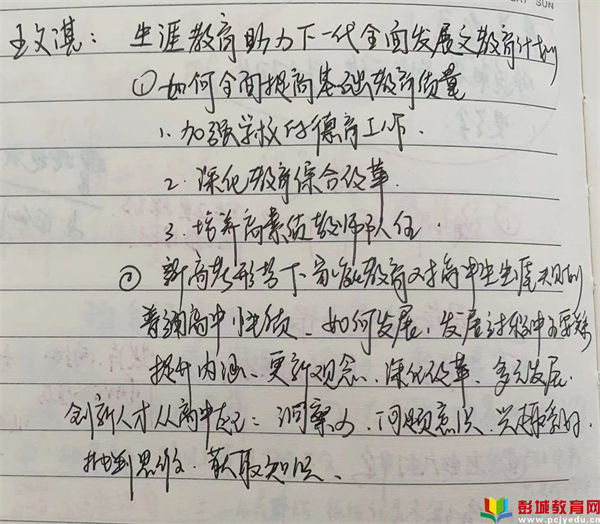 王文淇：生涯教育助力下一代全面发展之教育计划
①如何全面提高基础教育质量
1. 加强学校的德育工作.
2. 深化教育综合改革.
3. 培养高素质教师队伍
② 新高考形势下高职教育对高中生生涯规划
普通高中性质、如何发展，发展过程中
提升内涵、更新观念、深化改革、多元发展.
创新人才从高中起：洞察力、问题意识、兴趣
思维、获取知识、
彭城教育网
www.pcjyedu.cn
SUN